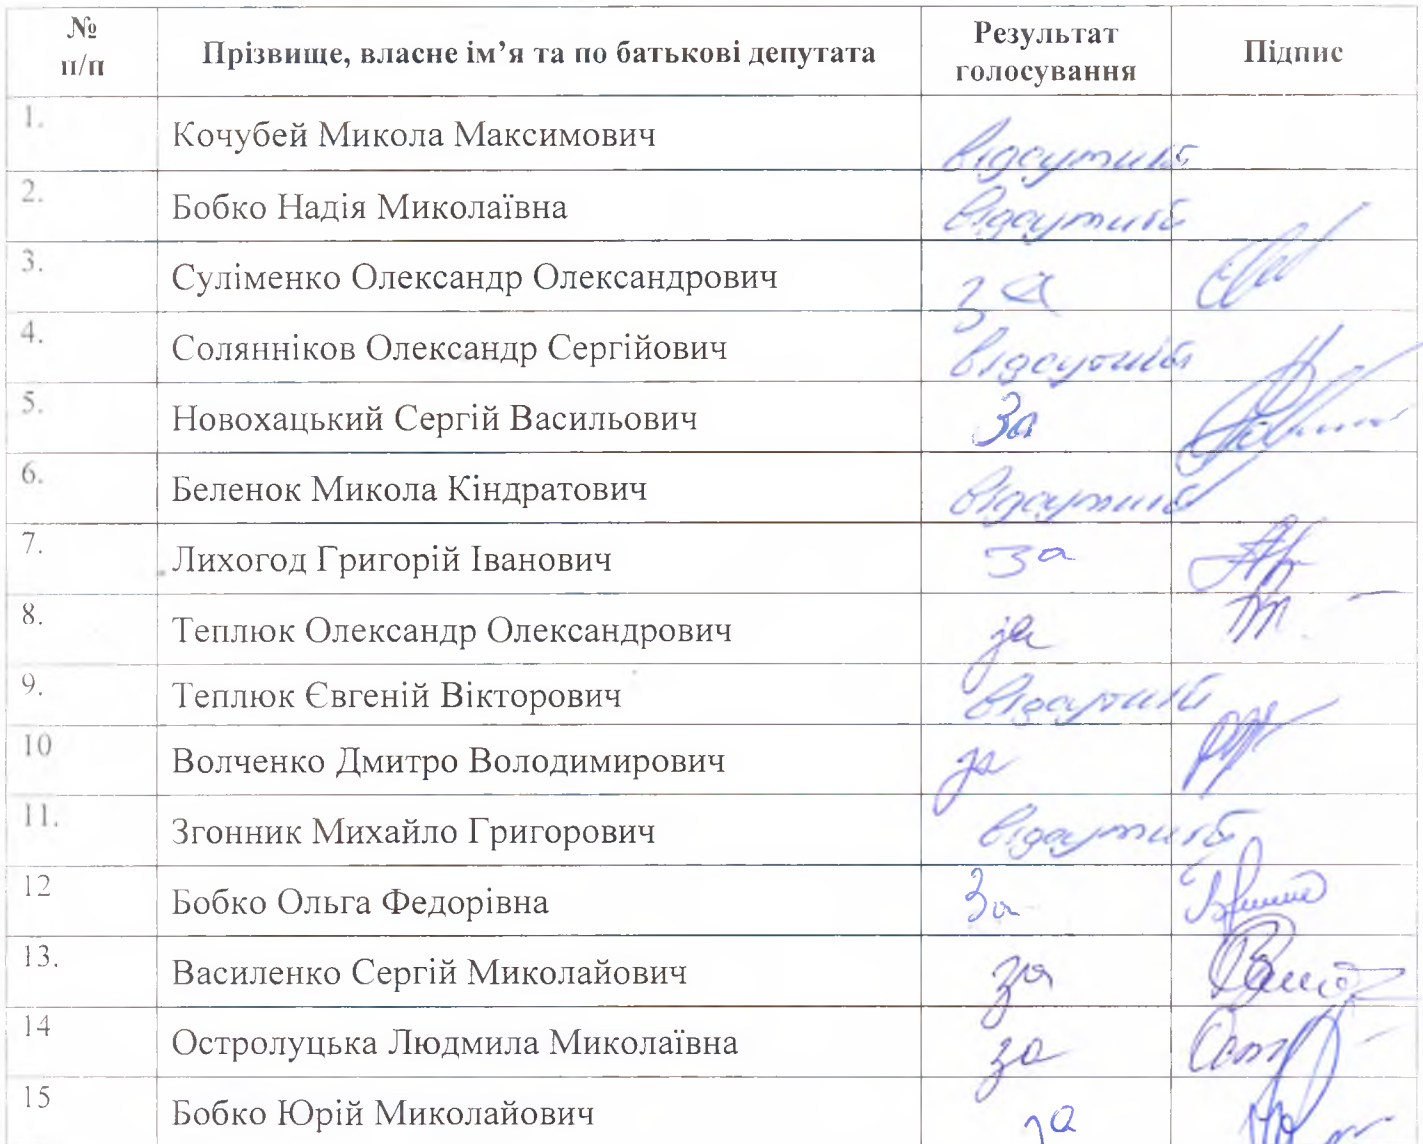 № п/п Прізвище, власне ім’я та по батькові депутата Результат голосування Підпис
1. Кочубей Микола Максимович відсутній
2. Бобко Надія Миколаївна відсутній
3. Суліменко Олександр Олександрович за
4. Солянніков Олександр Сергійович відсутній
5. Новохацький Сергій Васильович За
6. Беленок Микола Кіндратович відсутній
7. Лихогод Григорій Іванович за
8. Теплюк Олександр Олександрович за
9. Теплюк Євгеній Вікторович відсутній
10 Волченко Дмитро Володимирович за
11. Згонник Михайло Григорович відсутній
12 Бобко Ольга Федорівна За
13. Василенко Сергій Миколайович за
14 Остролуцька Людмила Миколаївна за
15 Бобко Юрій Миколайович за